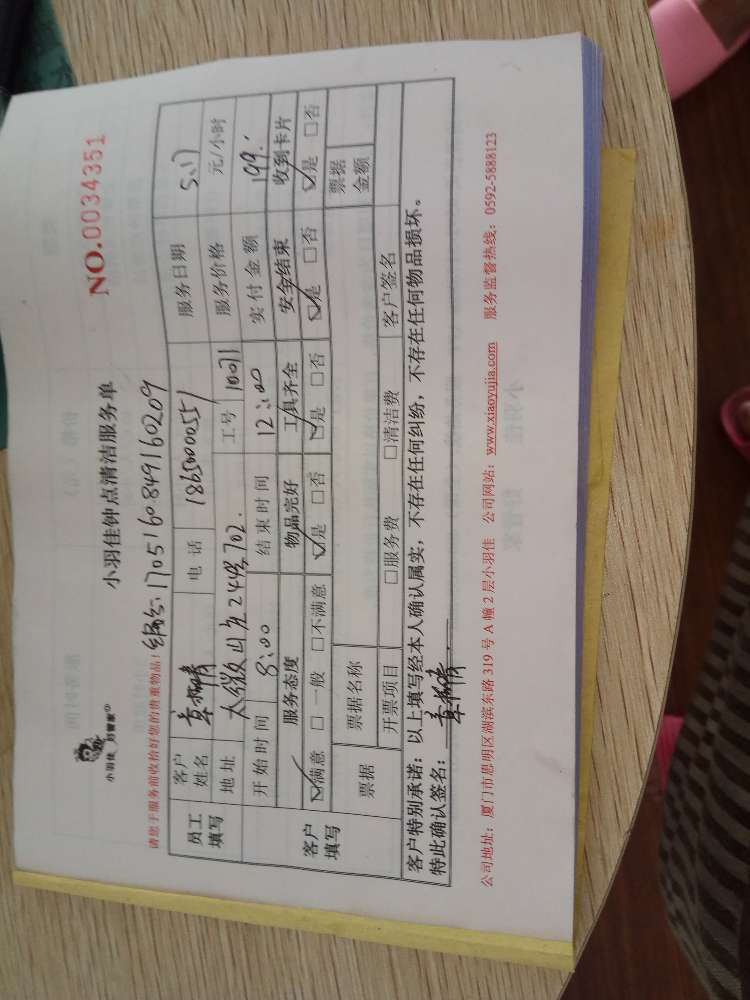 小羽佳 好管家
小羽佳钟点清洁服务单
NO.0034351
请您于服务前收拾好您的贵重物品！编号:1705160849160209
员工填写 客户姓名 章柳情 电话 18650000551 服务日期 5.17
地址 244号702. 工号 10071 服务价格 元/小时
开始时间 8:00 结束时间 12:00 实付金额 199.
客户填写 服务态度 物品完好 工具齐全 安全结束 收到卡片
☑满意 □一般 □不满意 ☑是 □否 ☑是 □否 ☑是 □否 ☑是 □否
票据 票据名称 票据金额
开票项目 □服务费 □清洁费 客户签名
客户特别承诺：以上填写经本人确认属实，不存在任何纠纷，不存在任何物品损坏。
特此确认签名：章柳情
公司地址：厦门市思明区湖滨东路319号A幢2层小羽佳 公司网站：www.xiaoyujia.com 服务监督热线：0592-5888123